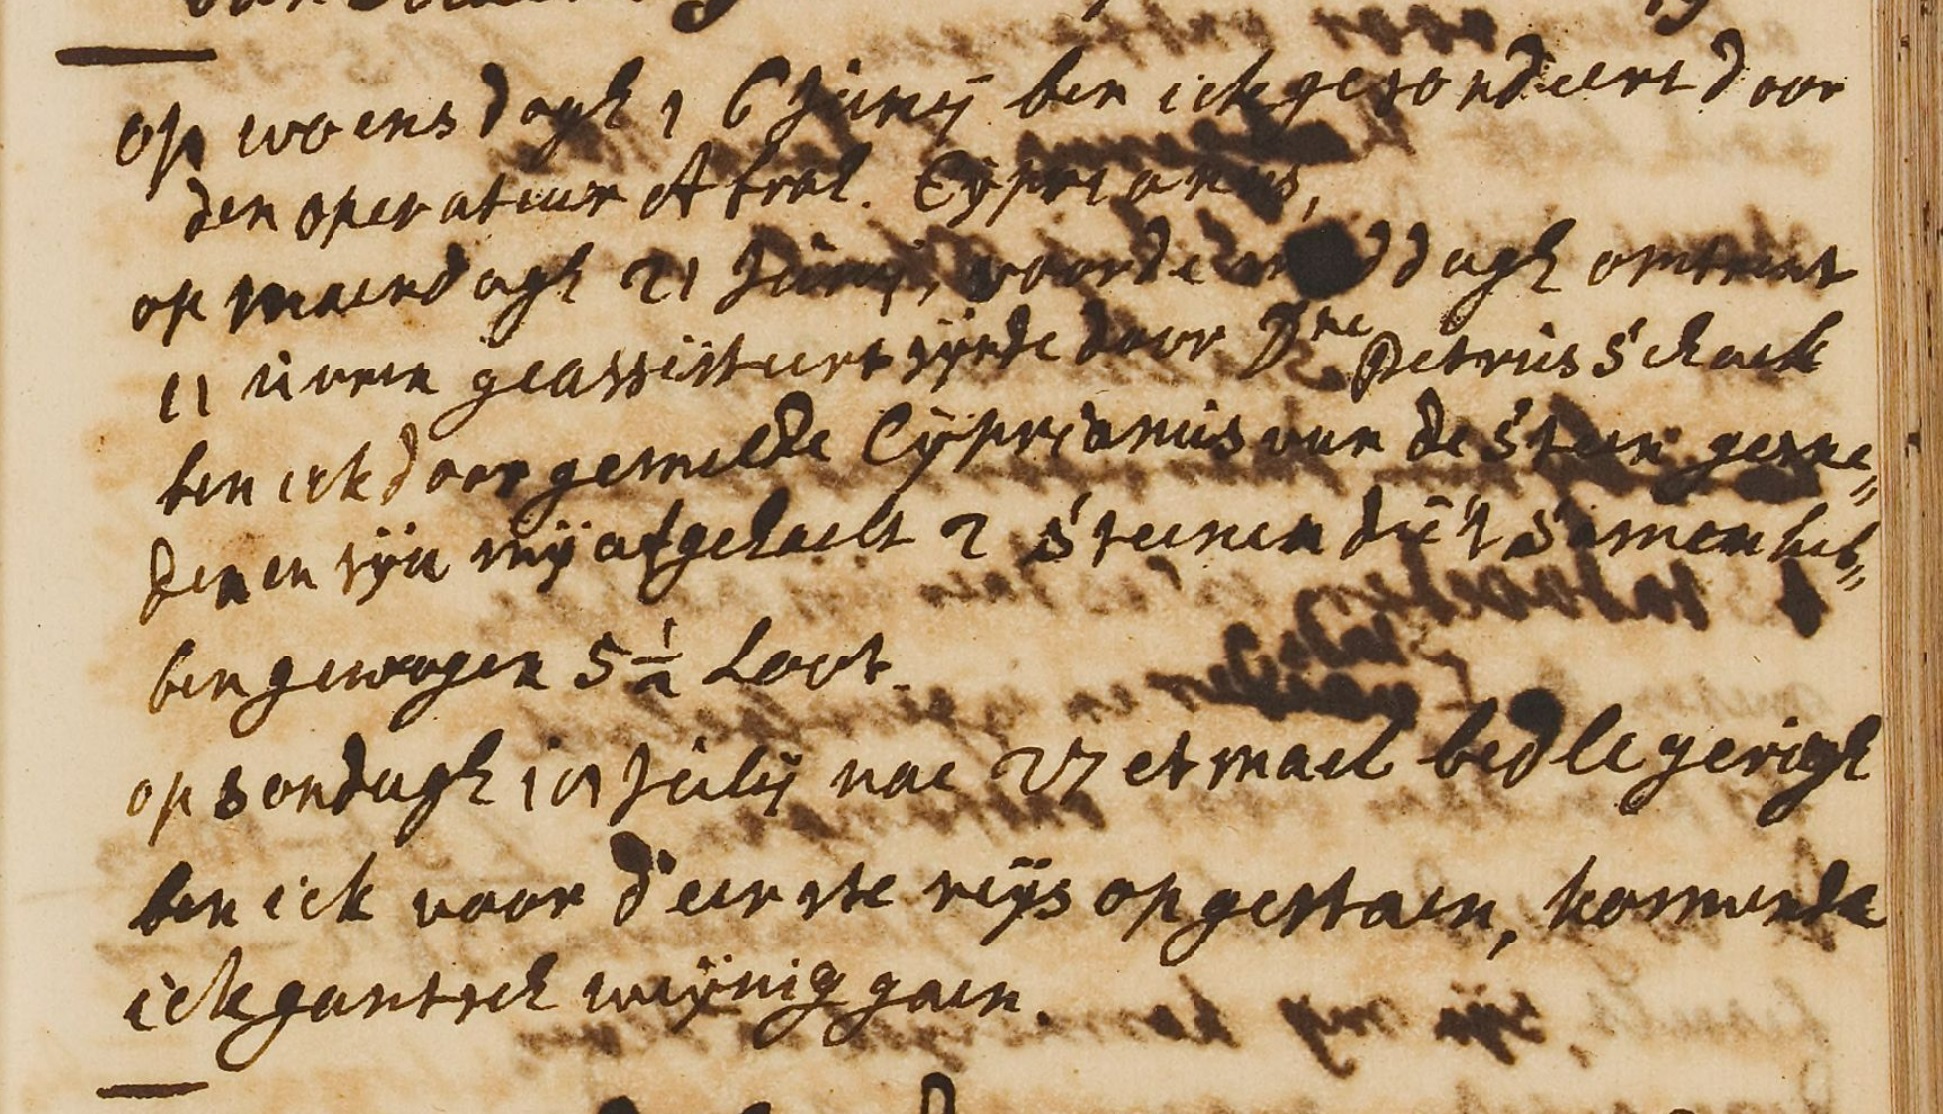 op woensdagh 16 Junij ben ick gesondeert door
den operateur Abrah. Cyprianus,
op maendagh 21 Junij, voorde middagh omtrent
11 uuren geassisteert sijnde door Dne Petrus Schaek
ben ick door gemelde Cyprianus van de steen gesne„
den en sijn mij afgehaelt 2 steenen die 't samen heb„
ben gewogen 5 1/2 Loot.
op sondagh 18 Julij nae 27 etmael bedlegerigh
ben ick voor d'eerste reijs opgestaen, konnende
ick gantsch weijnig gaen.